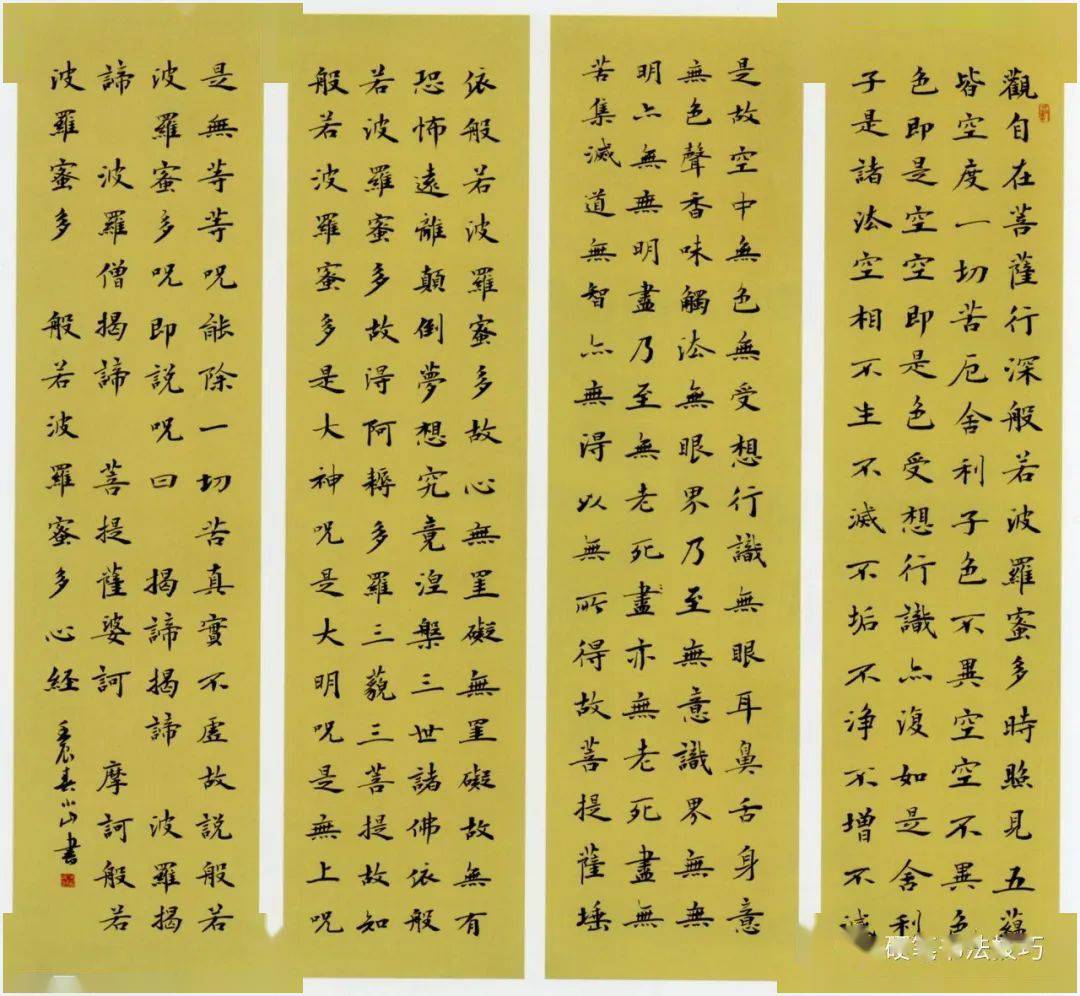 觀自在菩薩行深般若波羅蜜多時照見五蘊
皆空度一切苦厄舍利子色不異空空不異色
色即是空空即是色受想行識亦復如是舍利
子是諸法空相不生不滅不垢不净不增不減
是故空中無色無受想行識無眼耳鼻舌身意
無色聲香味觸法無眼界乃至無意識界無無
明亦無無明盡乃至無老死盡亦無老死盡無
苦集滅道無智亦無得以無所得故菩提薩埵
依般若波羅蜜多故心無罣礙無罣礙故無有
恐怖遠離顛倒夢想究竟涅槃三世諸佛依般
若波羅蜜多故得阿耨多羅三藐三菩提故知
般若波羅蜜多是大神呪是大明呪是無上呪
是無等等呪能除一切苦真實不虛故説般若
波羅蜜多呪即説呪曰 揭諦揭諦 波羅揭
諦 波羅僧揭諦 菩提薩婆訶 摩訶般若
波羅蜜多 般若波羅蜜多心経 書
硬笔书法技巧